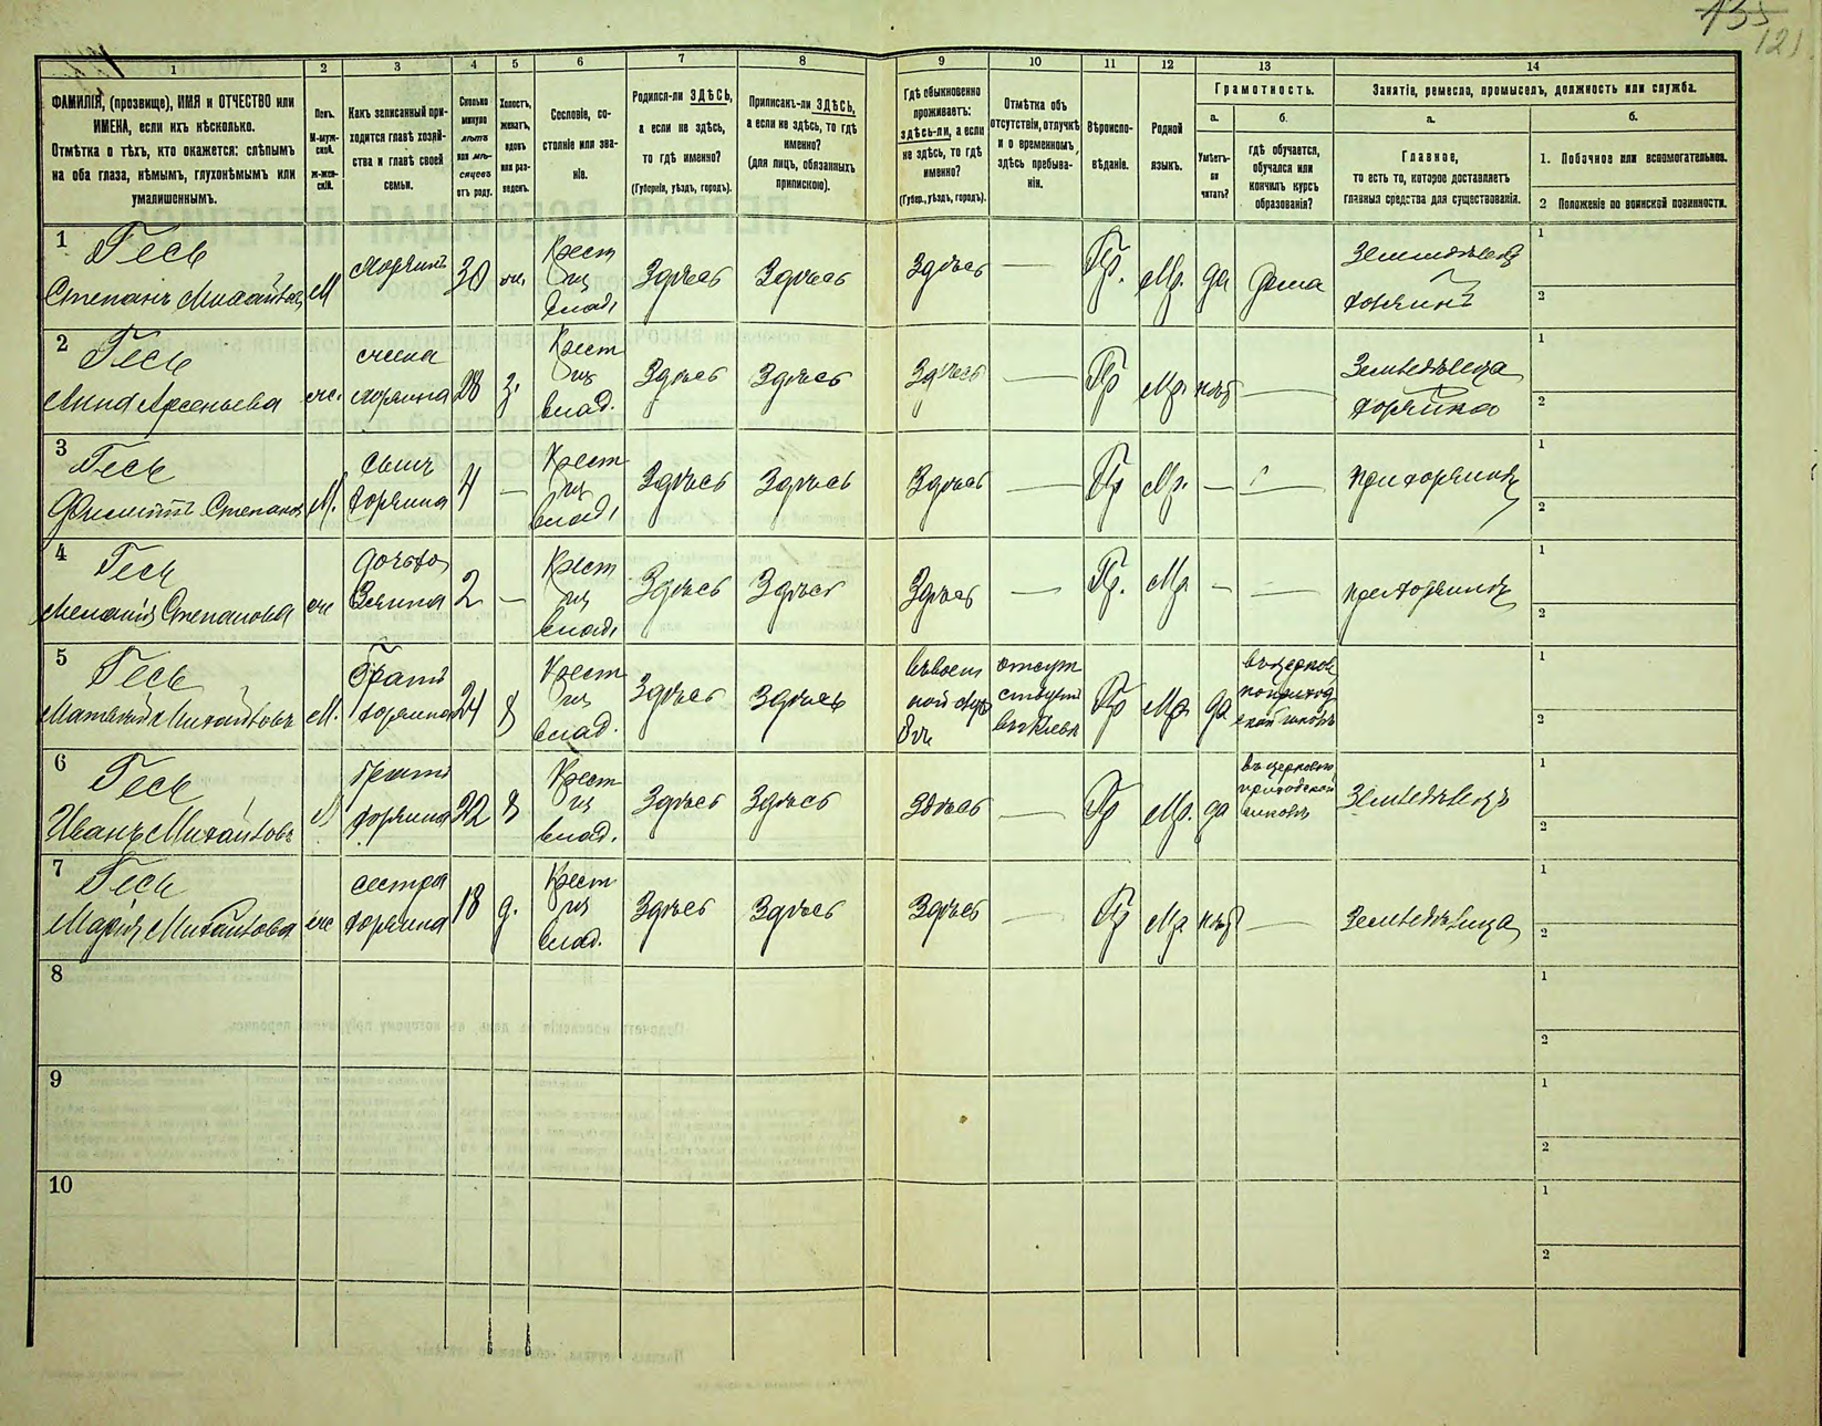 135
121
1
2
3
4
5
6
7
8
9
10
11
12
13
14
ФАМИЛІЯ, (прозвище), ИМЯ и ОТЧЕСТВО или
ИМЕНА, если ихъ нѣсколько.
Отмѣтка о тѣхъ, кто окажется: слѣпымъ
на оба глаза, нѣмымъ, глухонѣмымъ или
умалишеннымъ.
Полъ.
М-муж-
ской.
ж-жен-
скій.
Какъ записанный при-
ходится главѣ хозяй-
ства и главѣ своей
семьи.
Сколько
минуло
лѣтъ
или мѣ-
сяцевъ
отъ роду.
Холостъ,
женатъ,
вдовъ
или раз-
веденъ.
Сословіе, со-
стояніе или зва-
ніе.
Родился-ли ЗДѢСЬ,
а если не здѣсь,
то гдѣ именно?
(Губернія, уѣздъ, городъ).
Приписанъ-ли ЗДѢСЬ,
а если не здѣсь, то гдѣ
именно?
(для лицъ, обязанныхъ
припискою).
Гдѣ обыкновенно
проживаетъ:
здѣсь-ли, а если
не здѣсь, то гдѣ
именно?
(Губер., уѣздъ, городъ).
Отмѣтка объ
отсутствіи, отлучкѣ
и о временномъ
здѣсь пребыва-
ніи.
Вѣроиспо-
вѣданіе.
Родной
языкъ.
Грамотность.
а.
Умѣетъ-
ли
читать?
б.
гдѣ обучается,
обучался или
кончилъ курсъ
образованія?
Занятіе, ремесло, промыселъ, должность или служба.
а.
Главное,
то есть то, которое доставляетъ
главныя средства для существованія.
б.
1. Побочное или вспомогательное.
2 Положеніе по воинской повинности.
1
Гесь
Степанъ Михайлов
М
хозяинъ
30
ж.
Крест
из
влад.
Здѣсь
Здѣсь
Здѣсь
—
Пр.
Мр.
да
дома
Земледѣлецъ
хозяинъ
1
2
2
Гесь
Анна Арсеньева
ж.
жена
хозяина
28
з.
Крест
из
влад.
Здѣсь
Здѣсь
Здѣсь
—
Пр
Мр.
нѣт
—
Земледѣлица
хозяйка
1
2
3
Гесь
Филиппъ Степанов
М.
сынъ
хозяина
4
—
Крест
из
влад.
Здѣсь
Здѣсь
Здѣсь
—
Пр
Мр.
—
—
при хозяинѣ
1
2
4
Гесь
Меланія Степанова
ж
дочь хо
зяина
2
—
Крест
из
влад.
Здѣсь
Здѣсь
Здѣсь
—
Пр.
Мр
—
—
при хозяинѣ
1
2
5
Гесь
Матвѣй Михайловъ
М.
братъ
хозяина
24
х
Крест
из
влад.
Здѣсь
Здѣсь
въ воен
ной
отсут
ствует
въ Кіевѣ
Пр
Мр
да
въ церков
но приход
ской школѣ
1
2
6
Гесь
Иванъ Михайловъ
М
братъ
хозяина
22
х
Крест
из
влад.
Здѣсь
Здѣсь
Здѣсь
—
Пр
Мр.
да
въ церковно
приходской
школѣ
Земледѣлецъ
1
2
7
Гесь
Марія Михайлова
ж
сестра
хозяина
18
д.
Крест
из
влад.
Здѣсь
Здѣсь
Здѣсь
—
Пр
Мр
нѣт
—
Земледѣлица
1
2
8
1
2
9
1
2
10
1
2